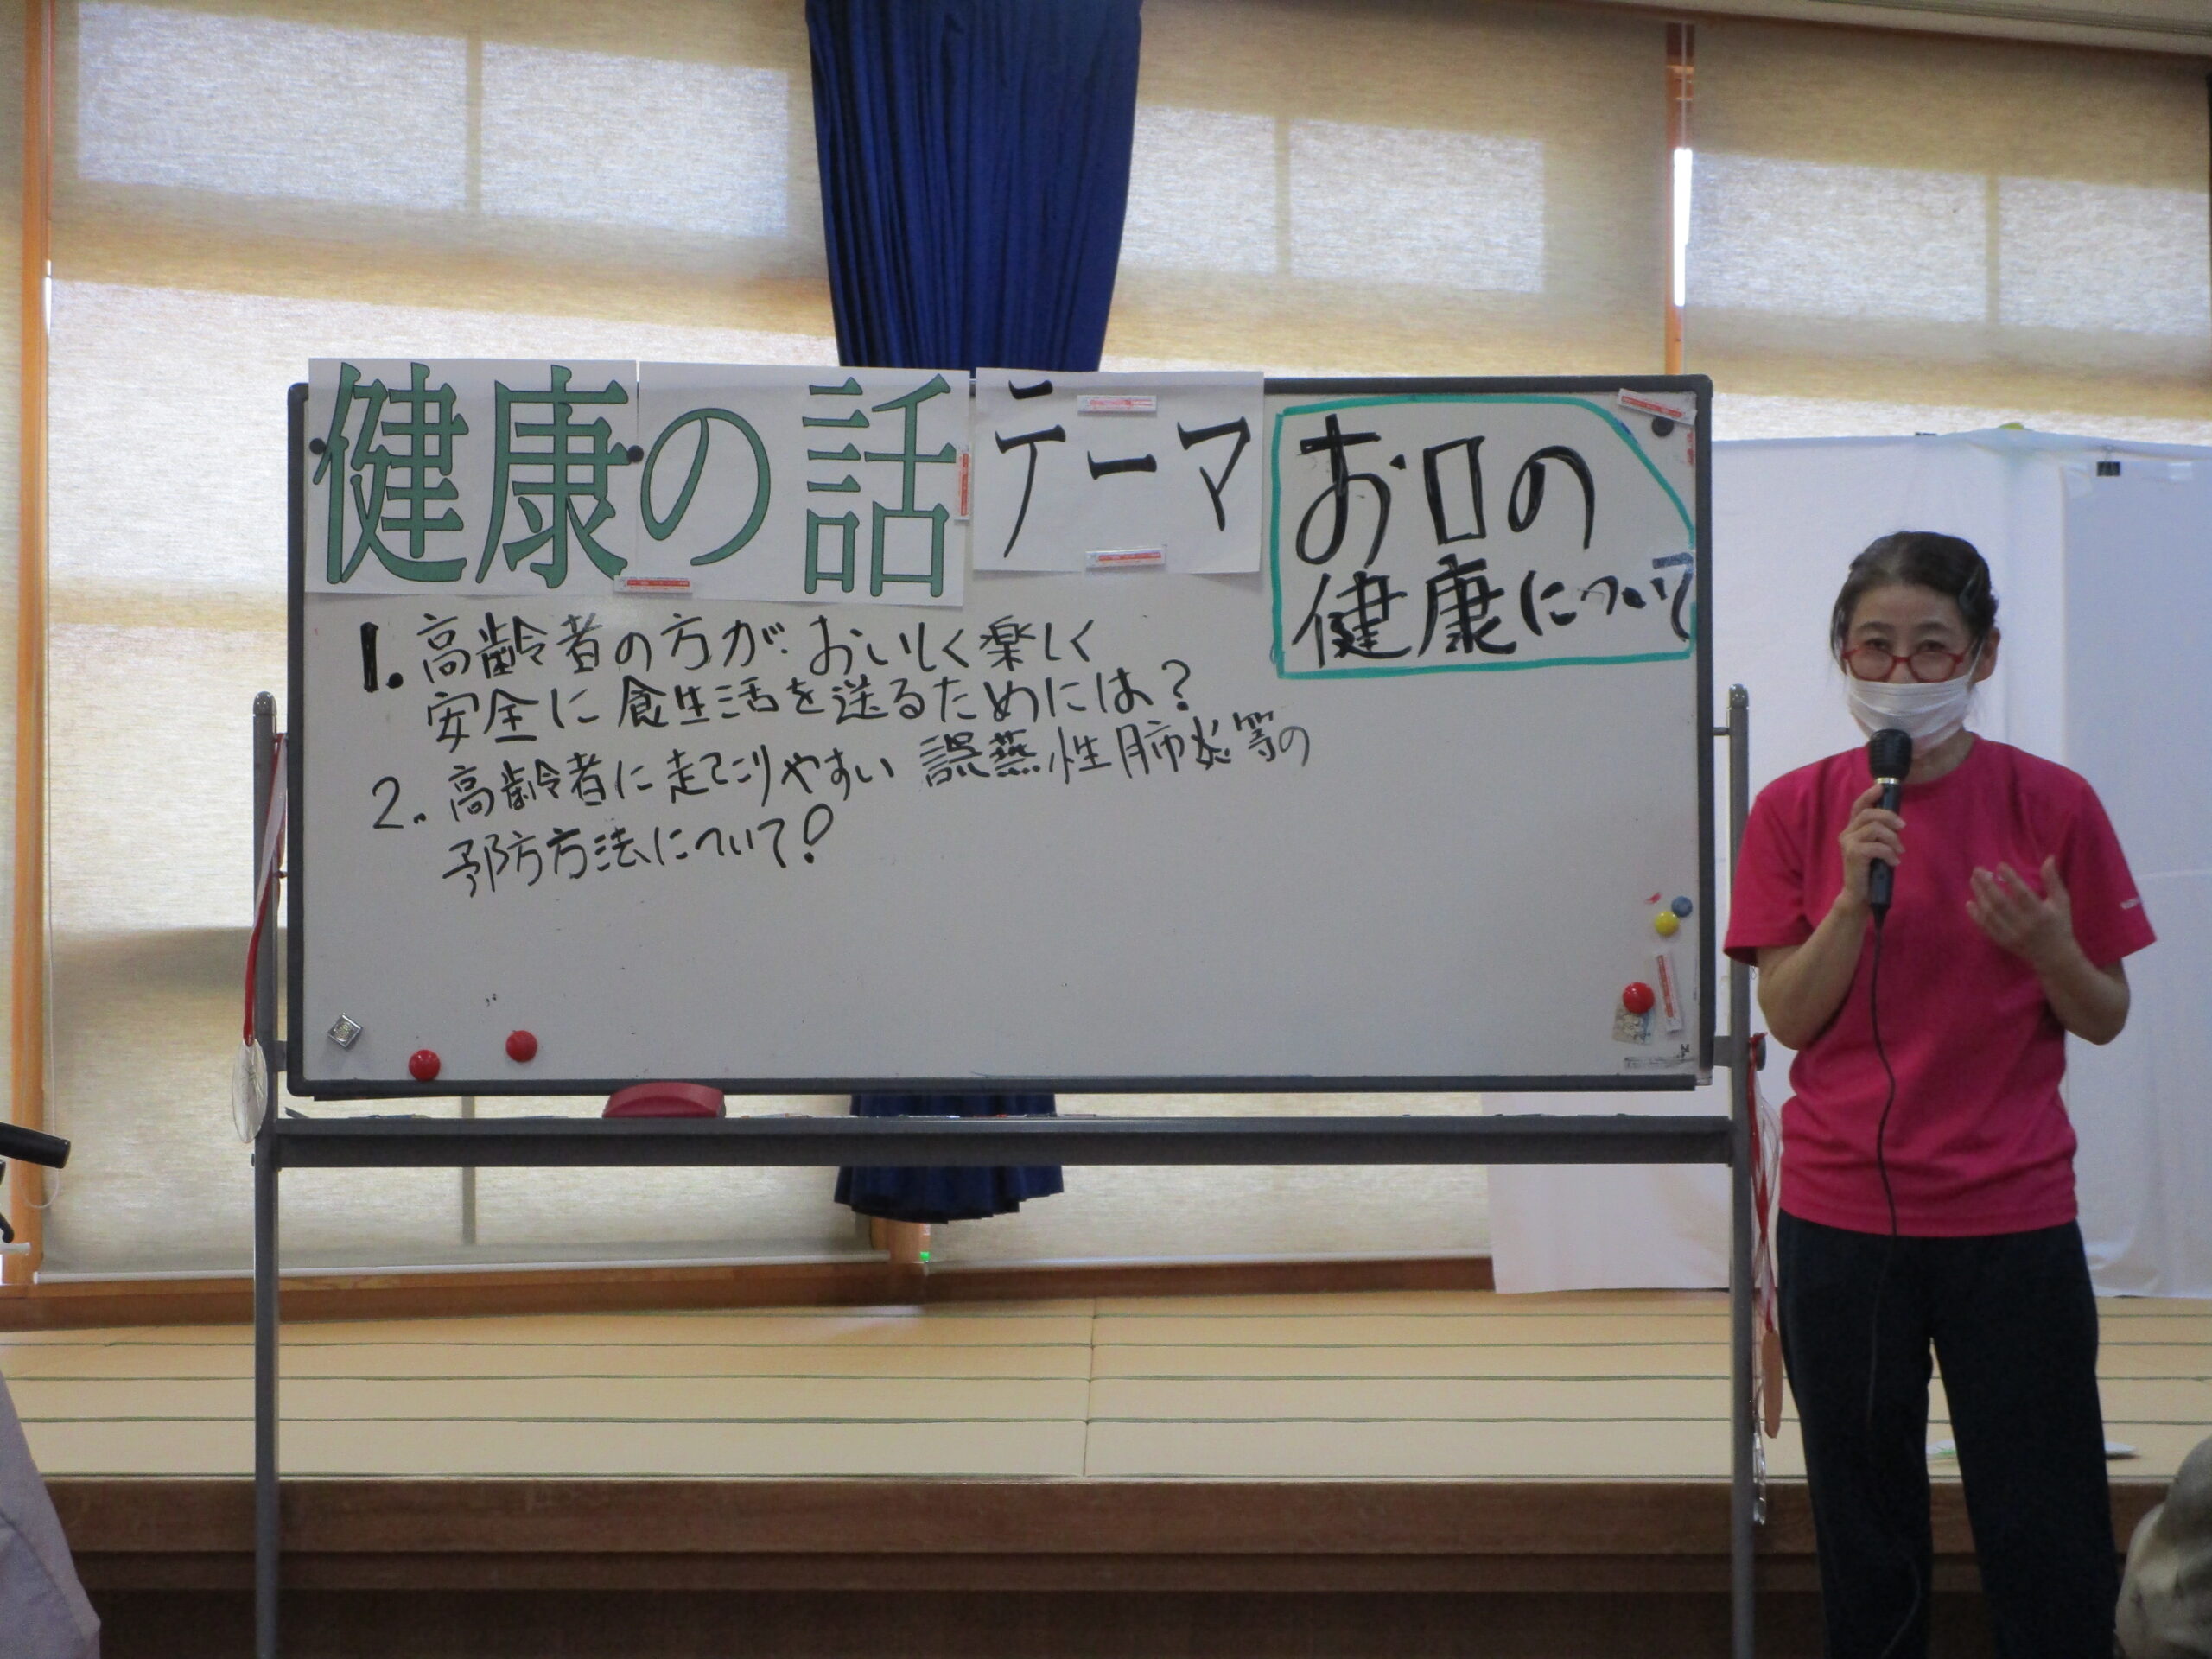 健康の話 テーマ
お口の
健康について
1. 高齢者の方が おいしく楽しく
安全に食生活を送るためには？
2. 高齢者に起こりやすい 誤燕性肺炎等の
予防方法について？